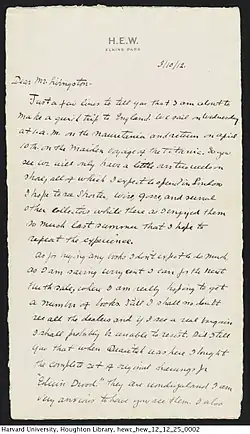 H.E.W.
ELKINS PARK
3/10/12.
Dear Mr. Livingston-
Just a few lines to tell you that I am about to
make a quick trip to England. We sail on Wednesday
at 1 a.m. on the Mauretania and return on april
10th. on the maiden voyage of the Titanic. So you
see we will only have a little over two weeks on
shore, all of which I expect to spend in London
I hope to see Shorter, Wise, Gosse, and several
other collectors while there as I enjoyed them
so much last summer that I hope to
repeat the experience.
As for buying any books I don't expect to do much
as I am saving every cent I can for the next
Huth sale, when I am really hoping to get
a number of books. Still I shall no doubt
see all the dealers and if I see a real bargain
I shall probably be unable to resist. Did I tell
you that when Quaritch was here I bought
the complete set of original drawings for
"Edwin Drood." They are wonderful and I am
very anxious to have you see them. I also
Harvard University, Houghton Library, hewc_hew_12_12_25_0002